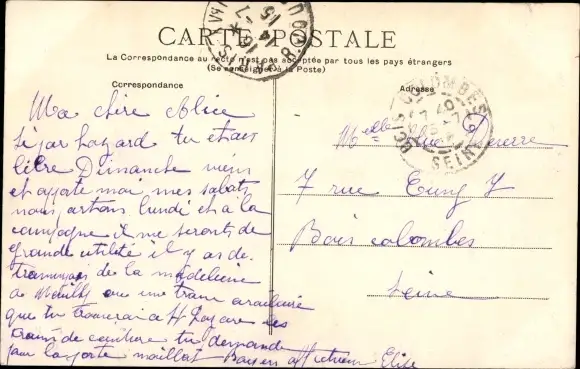 CARTE POSTALE
La Correspondance au recto n'est pas acceptée par tous les pays étrangers
(Se renseigner à la Poste)
Correspondance
Adresse
Ma chire Alice
si par hazard tu etais
libre Dimanche viens
et apporte moi mes sabots
nous partons lundi et a la
campagne il me seronts de
grande utilité il y as de
tramways de la madeleine
de Neuilly ou une tram
que tu trouverai a St Lazare les
trams de ceinture tu demande
pour la porte maillot Baisers Elise
Melle Alice
7 rue
Bois colombes
Seine
COLOMBES
SEINE